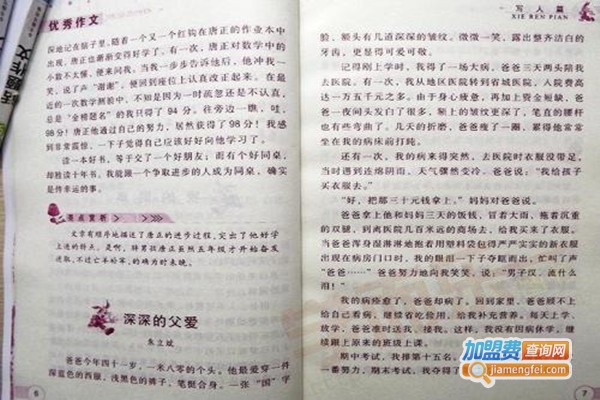 优秀作文
深地记在脑子里。随着一个又一个红钩在唐正的作业本中
出现，唐正也渐渐变得好学了。有一次，唐正对数学中的
小数不太懂，便来问我。当我一步步告诉他后，他冲我一
笑，说了声“谢谢”，便回到座位上认真改正起来。在最
近的一次数学测验中，不知是因为一时疏忽还是不认真，
总是“金榜题名”的我只得了94分。往旁边一瞧，哇，
98分！唐正他通过自己的努力，居然获得了98分！我感
到非常震惊，一下子觉得自己应该好好向他学习了。
读一本好书，等于交了一个好朋友；而有个好同桌，
却胜读十年书。我能跟一个争取进步的人成为同桌，确实
是件幸运的事。
要点赏析
文章有顺序地描述了唐正的进步过程，突出了他好学
上进的特点。是啊，
深深的父爱
朱立斌
爸爸今年四十一岁，一米八零的个头。他最爱穿一件
深蓝色的西服，浅黑色的裤子，笔挺合身。一张“国”字
6
写人篇
XIE REN PIAN
脸，额头有几道深深的皱纹。微微一笑，露出整齐洁白的
牙齿，更显得可爱可敬。
记得刚上学时，我得了一场大病，爸爸三天两头陪我
去医院。有一次，我从地区医院转到省城医院，入院费高
达一万五千元之多。由于身心疲惫，再加上资金短缺，爸
爸一夜间头发白了很多，额上的皱纹更深了，笔直的腰杆
也有些弯曲了。几天的折磨，爸爸瘦了一圈，累得他常常
坐在我的病床前打盹。
还有一次，我的病来得突然，去医院时衣服没带足，
当时遇到连绵阴雨，天气骤然变冷。爸爸说：“我给孩子
买衣服去。”
“好，把那三十元钱拿上。”妈妈对爸爸说。
爸爸拿上他和妈妈三天的饭钱，冒着大雨，拖着沉重
的双腿，到离医院几百米远的商场去，给我买来了衣服。
当爸爸浑身湿淋淋地抱着用塑料袋包得严严实实的新衣服
出现在病房门口时，我的眼泪一下子夺眶而出，忙叫了声
“爸爸……”爸爸努力地向我笑笑，说：“男子汉，流什么
泪！”
我的病痊愈了，爸爸却病了。回到家里，爸爸顾不上
给自己看病，继续省吃俭用，给我补充营养。每天上学、
放学，爸爸准时送我、接我。这样，我没有因病休学，继
续跟上原来的班级上课。
期中考试，我排第十五名。
一番努力，期末考试，我夺得了
7
加盟费查询网
jiamengfei.com